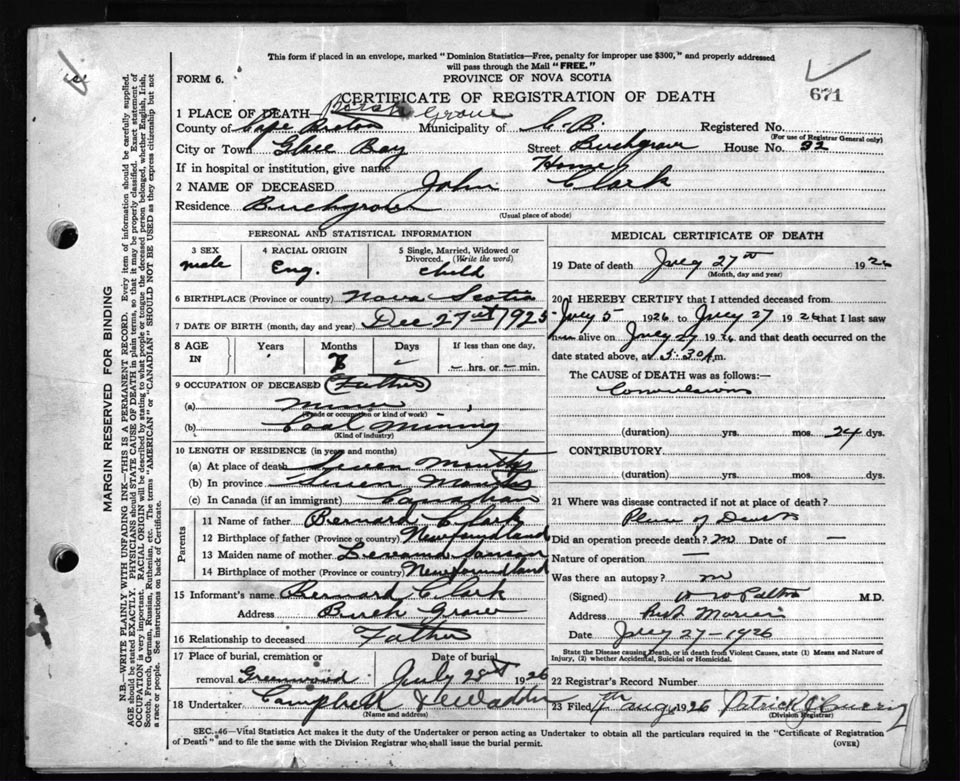 This form if placed in an envelope, marked "Dominion Statistics—Free, penalty for improper use $300," and properly addressed
will pass through the Mail "FREE."
FORM 6.
PROVINCE OF NOVA SCOTIA
671
CERTIFICATE OF REGISTRATION OF DEATH
1 PLACE OF DEATH Birch Grove
County of Cape Breton Municipality of C. B. Registered No.
(For use of Registrar General only)
City or Town Glace Bay Street Birchgrove House No. 92
If in hospital or institution, give name Home
2 NAME OF DECEASED John Clark
Residence Birchgrove
(Usual place of abode)
PERSONAL AND STATISTICAL INFORMATION
3 SEX male
4 RACIAL ORIGIN Eng.
5 Single, Married, Widowed or Divorced. (Write the word) child
6 BIRTHPLACE (Province or country) Nova Scotia
7 DATE OF BIRTH (month, day and year) Dec 27 1925
8 AGE IN Years Months 7 Days If less than one day, – hrs. or – min.
9 OCCUPATION OF DECEASED (Father)
(a) Miner
(Trade or occupation or kind of work)
(b) Coal Mining
(Kind of industry)
10 LENGTH OF RESIDENCE (in years and months)
(a) At place of death Seven Months
(b) In province Seven Months
(c) In Canada (if an immigrant) Canadian
Parents
11 Name of father Bernard Clark
12 Birthplace of father (Province or country) Newfoundland
13 Maiden name of mother
14 Birthplace of mother (Province or country) Newfoundland
15 Informant's name Bernard Clark
Address Birch Grove
16 Relationship to deceased Father
17 Place of burial, cremation or removal Greenwood Date of burial July 28 1926
18 Undertaker Campbell &
(Name and address)
MEDICAL CERTIFICATE OF DEATH
19 Date of death July 27th 1926
(Month, day and year)
20 I HEREBY CERTIFY that I attended deceased from
July 5 1926 to July 27 1926 that I last saw
him alive on July 27 1926 and that death occurred on the
date stated above, at 5:30 m.
The CAUSE of DEATH was as follows:—
Convulsions
(duration) yrs. mos. 24 dys.
CONTRIBUTORY
(duration) yrs. mos. dys.
21 Where was disease contracted if not at place of death?
Place of Death
Did an operation precede death? no Date of —
Nature of operation —
Was there an autopsy? no
(Signed) M.D.
Address Port Morien
Date July 27-1926
State the Disease causing Death, or in death from Violent Causes, state (1) Means and Nature of
Injury, (2) whether Accidental, Suicidal or Homicidal.
22 Registrar's Record Number
23 Filed 4th Aug 1926 Patrick
(Division Registrar)
SEC. 46—Vital Statistics Act makes it the duty of the Undertaker or person acting as Undertaker to obtain all the particulars required in the "Certificate of Registration
of Death" and to file the same with the Division Registrar who shall issue the burial permit.
(OVER)
MARGIN RESERVED FOR BINDING
N.B.—WRITE PLAINLY WITH UNFADING INK—THIS IS A PERMANENT RECORD. Every item of information should be carefully supplied.
AGE should be stated EXACTLY. PHYSICIANS should STATE CAUSE OF DEATH in plain terms, so that it may be properly classified. Exact statement of
OCCUPATION is very important. RACIAL ORIGIN will be described by stating to what people or tongue the deceased person belonged, whether English, Irish,
Scotch, French, German, Russian, Ruthenian, etc. The terms "AMERICAN" or "CANADIAN" SHOULD NOT BE USED as they express citizenship but not
a race or people. See instructions on back of Certificate.